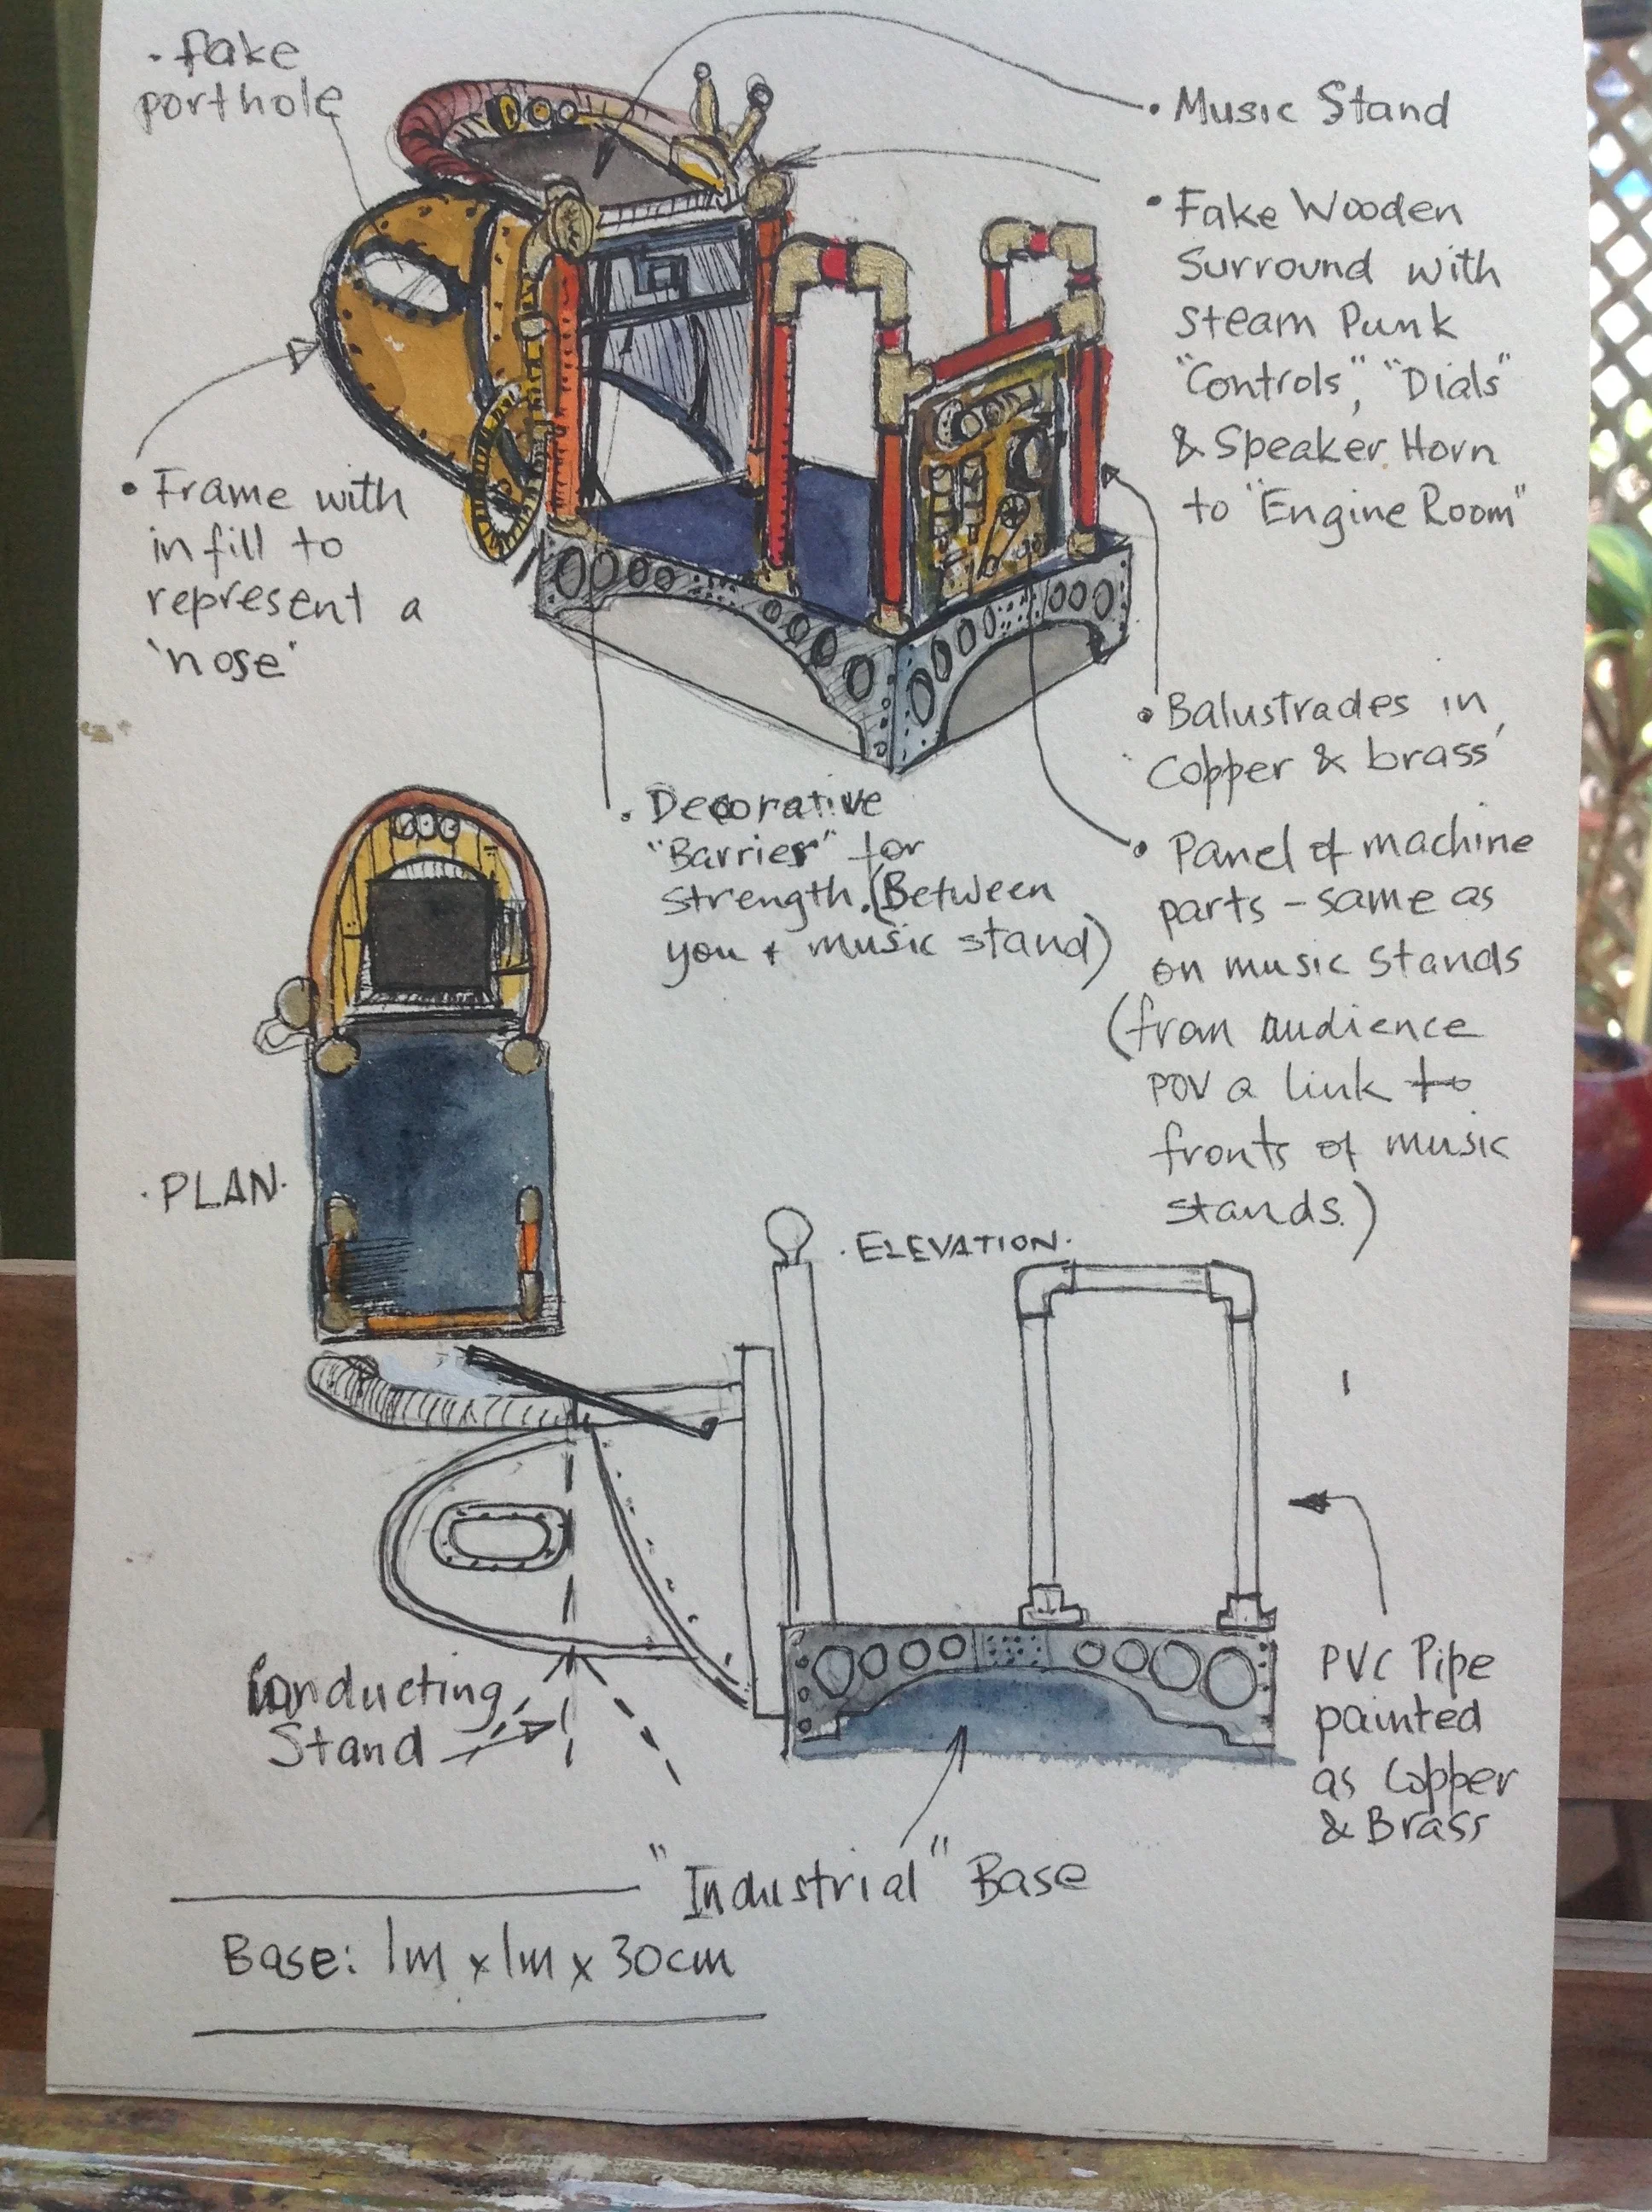 • fake
porthole
• Music Stand
• Fake Wooden
Surround with
Steam Punk
"Controls", "Dials"
& Speaker Horn
to "Engine Room"
• Frame with
in fill to
represent a
'nose'
• Balustrades in
Copper & brass
• Decorative
"Barrier" for
Strength. (Between
you + music stand)
• Panel of machine
parts - same as
on music stands
(from audience
POV a link to
fronts of music
stands.)
• PLAN •
• ELEVATION •
Conducting
Stand
PVC Pipe
painted
as Copper
& Brass
"Industrial" Base
Base: 1m x 1m x 30cm